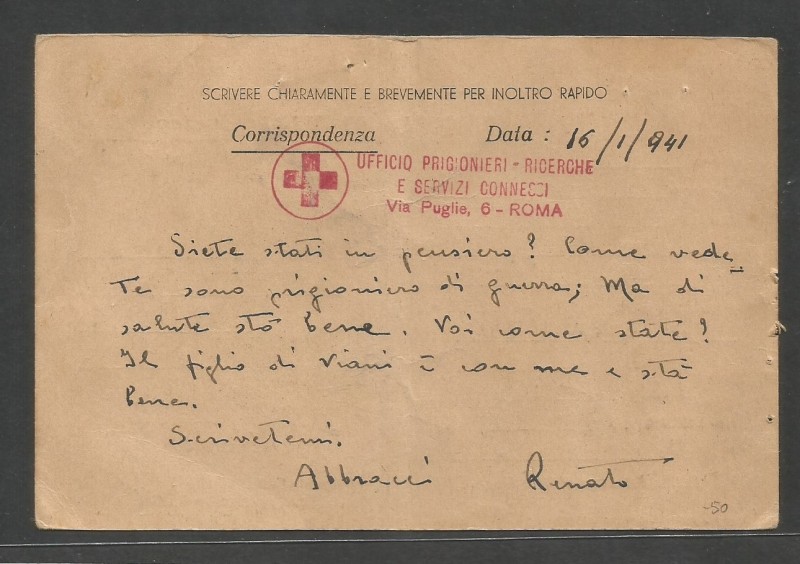 SCRIVERE CHIARAMENTE E BREVEMENTE PER INOLTRO RAPIDO
Corrispondenza Data : 16/1/941
UFFICIO PRIGIONIERI - RICERCHE
E SERVIZI CONNESSI
Via Puglie, 6 - ROMA
Siete stati in pensiero? Come vede_
Te sono prigioniero di guerra; Ma di
salute stò bene. Voi come state?
Il figlio di Viani è con me e stà
bene.
Scrivetemi.
Abbracci Renato
-50